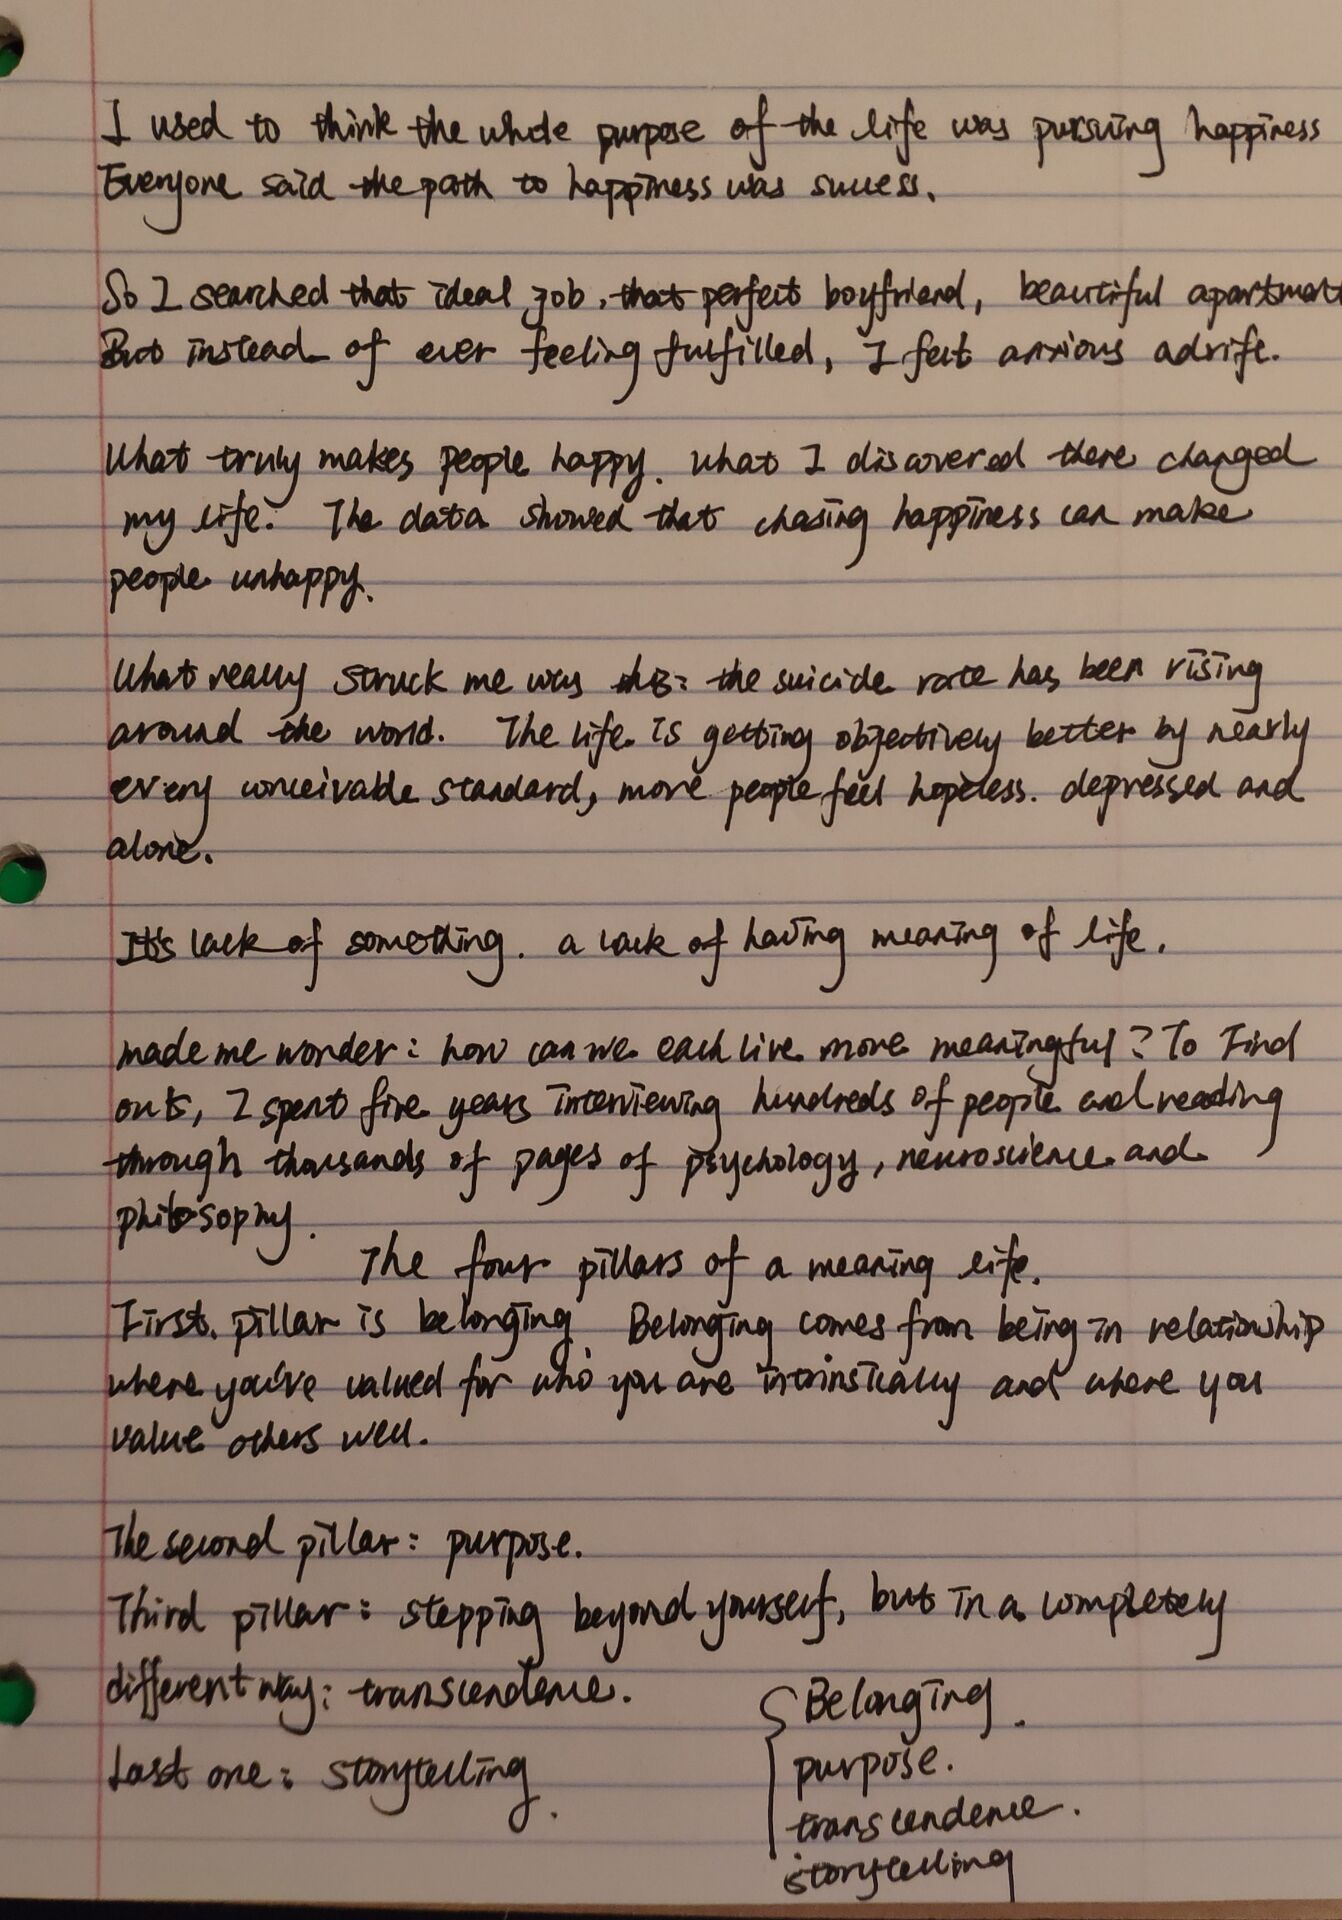 I used to think the whole purpose of the life was pursuing happiness
Everyone said the path to happiness was success.
So I searched that ideal job, that perfect boyfriend, beautiful apartment
But instead of ever feeling fulfilled, I felt anxious adrife.
What truly makes people happy. what I discovered there changed
my life. The data showed that chasing happiness can make
people unhappy.
What really struck me was this: the suicide rate has been rising
around the world. The life is getting objectively better by nearly
every conceivable standard, more people feel hopeless. depressed and
alone.
It's lack of something. a lack of having meaning of life.
made me wonder: how can we each live more meaningful? To Find
out, I spent five years interviewing hundreds of people and reading
through thousands of pages of psychology, neuroscience and
philosophy.
The four pillars of a meaning life.
First. pillar is belonging. Belonging comes from being in relationship
where you're valued for who you are intrinsically and where you
value others well.
The second pillar: purpose.
Third pillar: stepping beyond yourself, but in a completely
different way: transcendence.
Last one: storytelling.
Belonging.
purpose.
transcendence.
storytelling